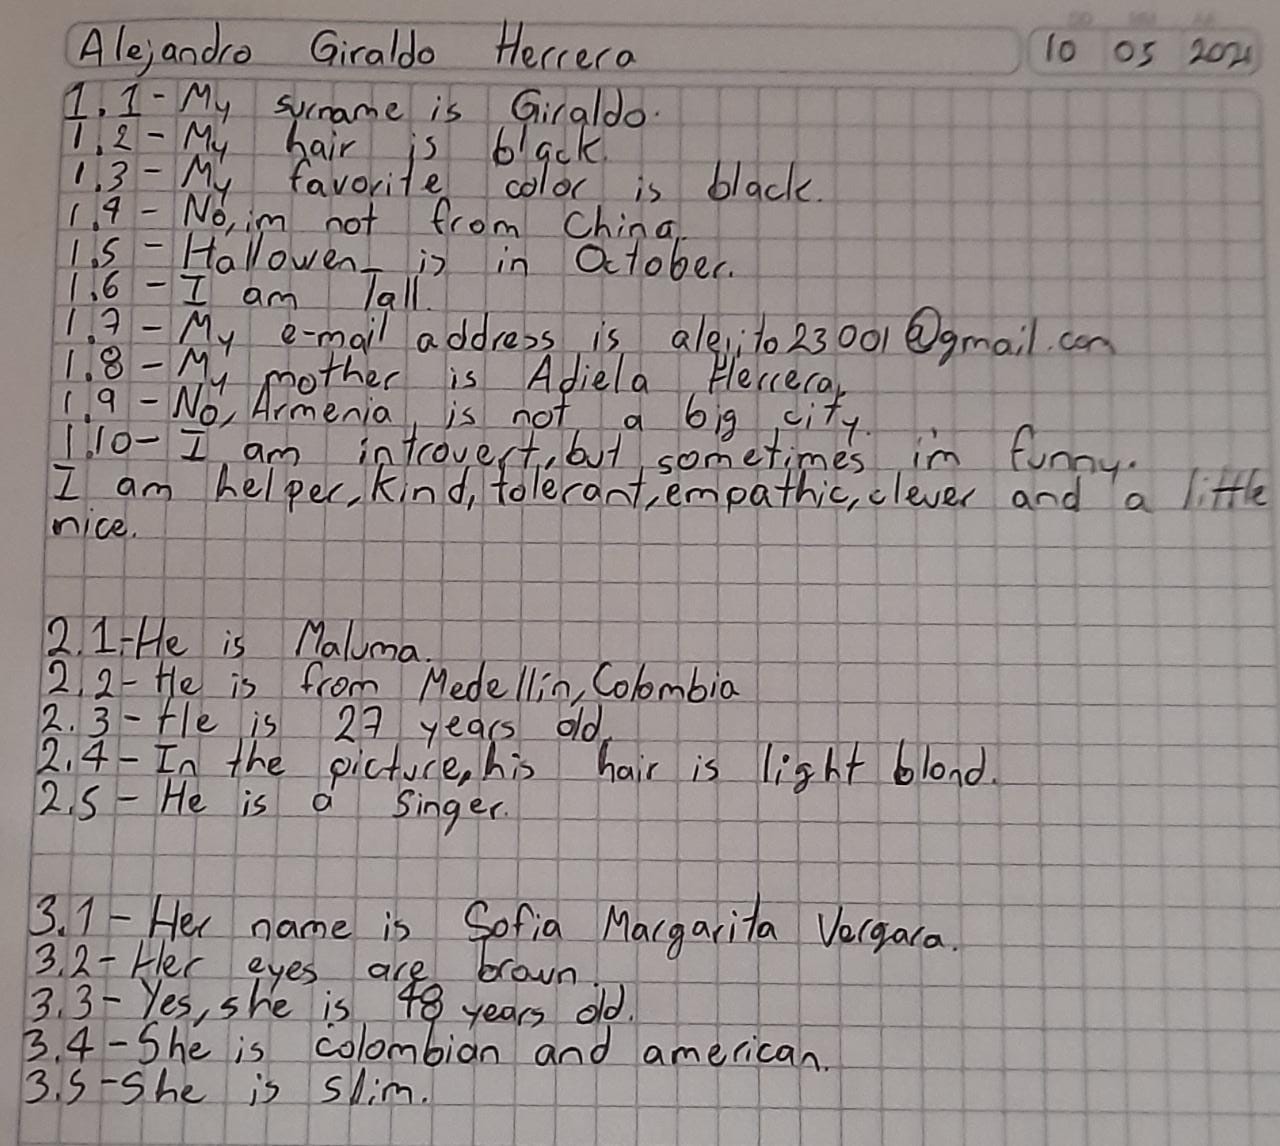 Alejandro Giraldo Herrera 10 05 2021
1.1- My surname is Giraldo.
1.2- My hair is black.
1.3- My favorite color is black.
1.4- No, im not from China.
1.5- Hallowen is in October.
1.6- I am Tall.
1.7- My e-mail address is alejito23001@gmail.com
1.8- My mother is Adiela Herrera.
1.9- No, Armenia is not a big city.
1.10- I am introvert, but sometimes im funny.
I am helper, kind, tolerant, empathic, clever and a little
nice.
2.1-He is Maluma.
2.2- He is from Medellin, Colombia
2.3- He is 27 years old.
2.4- In the picture, his hair is light blond.
2.5- He is a singer.
3.1- Her name is Sofia Margarita Vergara.
3.2- Her eyes are brown.
3.3- Yes, she is 48 years old.
3.4-She is colombian and american.
3.5-She is slim.